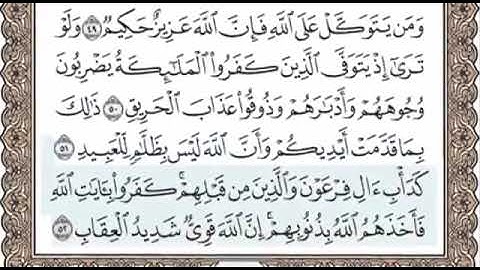 وَمَن يَتَوَكَّلْ عَلَى ٱللَّهِ فَإِنَّ ٱللَّهَ عَزِيزٌ حَكِيمٌ ٤٩ وَلَوْ
تَرَىٰٓ إِذْ يَتَوَفَّى ٱلَّذِينَ كَفَرُوا۟ ٱلْمَلَٰٓئِكَةُ يَضْرِبُونَ
وُجُوهَهُمْ وَأَدْبَٰرَهُمْ وَذُوقُوا۟ عَذَابَ ٱلْحَرِيقِ ٥٠ ذَٰلِكَ
بِمَا قَدَّمَتْ أَيْدِيكُمْ وَأَنَّ ٱللَّهَ لَيْسَ بِظَلَّٰمٍ لِّلْعَبِيدِ ٥١
كَدَأْبِ ءَالِ فِرْعَوْنَ وَٱلَّذِينَ مِن قَبْلِهِمْ ۚ كَفَرُوا۟ بِـَٔايَٰتِ ٱللَّهِ
فَأَخَذَهُمُ ٱللَّهُ بِذُنُوبِهِمْ ۗ إِنَّ ٱللَّهَ قَوِىٌّ شَدِيدُ ٱلْعِقَابِ ٥٢